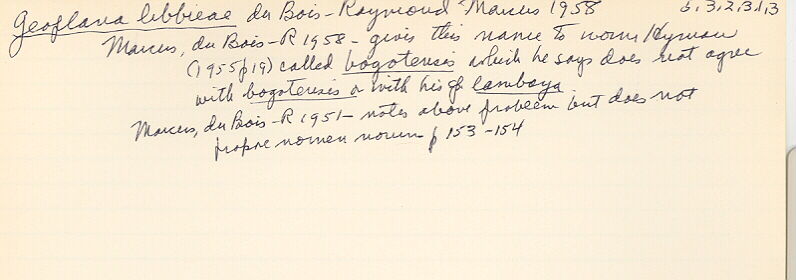 Geoplana libbieae du Bois-Raymond Marcus 1958 6.3.2.3.1.13
Marcus, du Bois-R 1958 - gives this name to worm Hyman
(1955 p 19) called bogotensis which he says does not agree
with bogotensis or with his lambaya
Marcus, du Bois-R 1951 - notes above problem but does not
propse nomen novum p 153-154